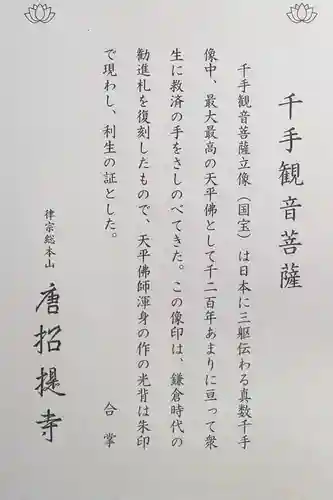 千手観音菩薩
千手観音菩薩立像（国宝）は日本に三躯伝わる真数千手
像中、最大最高の天平佛として千二百年あまりに亘って衆
生に救済の手をさしのべてきた。この像印は、鎌倉時代の
勧進札を復刻したもので、天平佛師渾身の作の光背は朱印
で現わし、利生の証とした。
合掌
律宗総本山
唐招提寺